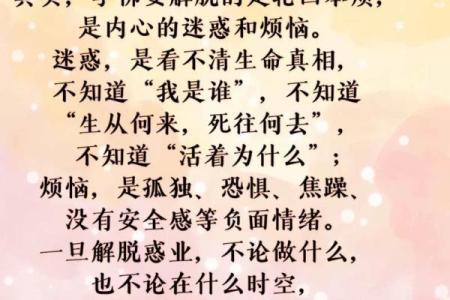 是内心的迷惑和烦恼。
迷惑，是看不清生命真相，
不知道“我是谁”，不知道
“生从何来，死往何去”，
不知道“活着为什么”；
烦恼，是孤独、恐惧、焦躁、
没有安全感等负面情绪。
一旦解脱惑业，不论做什么，
也不论在什么时空，